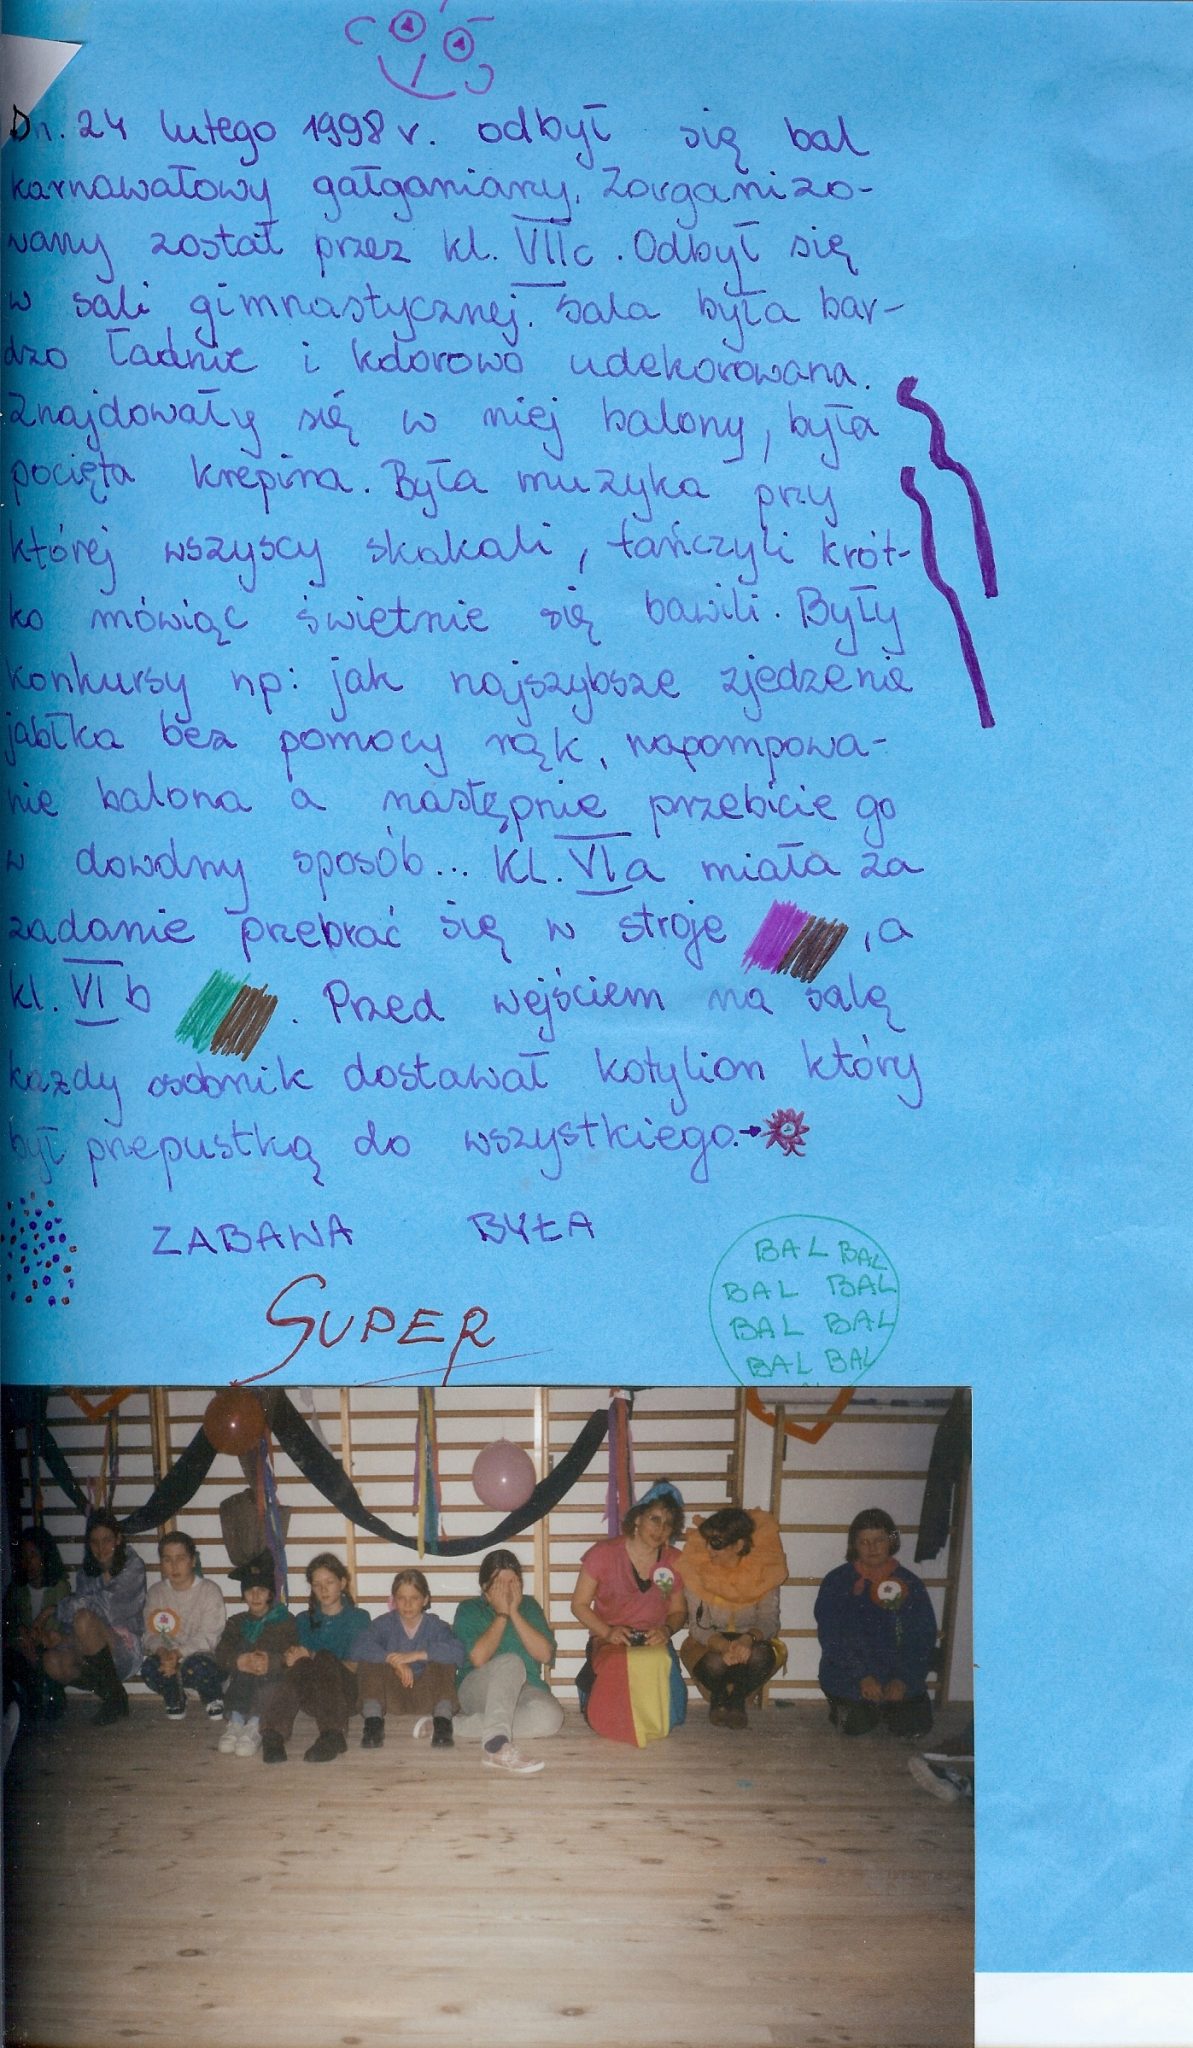 Dn. 24 lutego 1998 r. odbył się bal
karnawałowy gałganiany. Zorganizo-
wany został przez kl. VIIc. Odbył się
w sali gimnastycznej. Sala była bar-
dzo ładnie i kolorowo udekorowana.
Znajdowały się w niej balony, była
pocięta krepina. Była muzyka przy
której wszyscy skakali, tańczyli krót-
ko mówiąc świetnie się bawili. Były
konkursy np: jak najszybsze zjedzenie
jabłka bez pomocy rąk, napompowa-
nie balona a następnie przebicie go
w dowolny sposób... Kl. VIa miała za
zadanie przebrać się w stroje , a
kl. VI b . Przed wejściem na salę
każdy osobnik dostawał kotylion który
był przepustką do wszystkiego.
ZABAWA BYŁA
SUPER
BAL BAL
BAL BAL
BAL BAL
BAL BAL